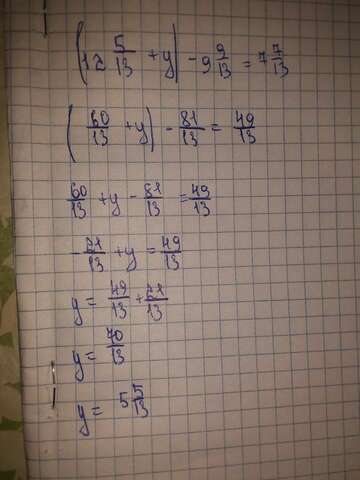 (12 5/13 + y) - 9 9/13 = 7 7/13
(60/13 + y) - 81/13 = 49/13
60/13 + y - 81/13 = 49/13
- 21/13 + y = 49/13
y = 49/13 + 21/13
y = 70/13
y = 5 5/13